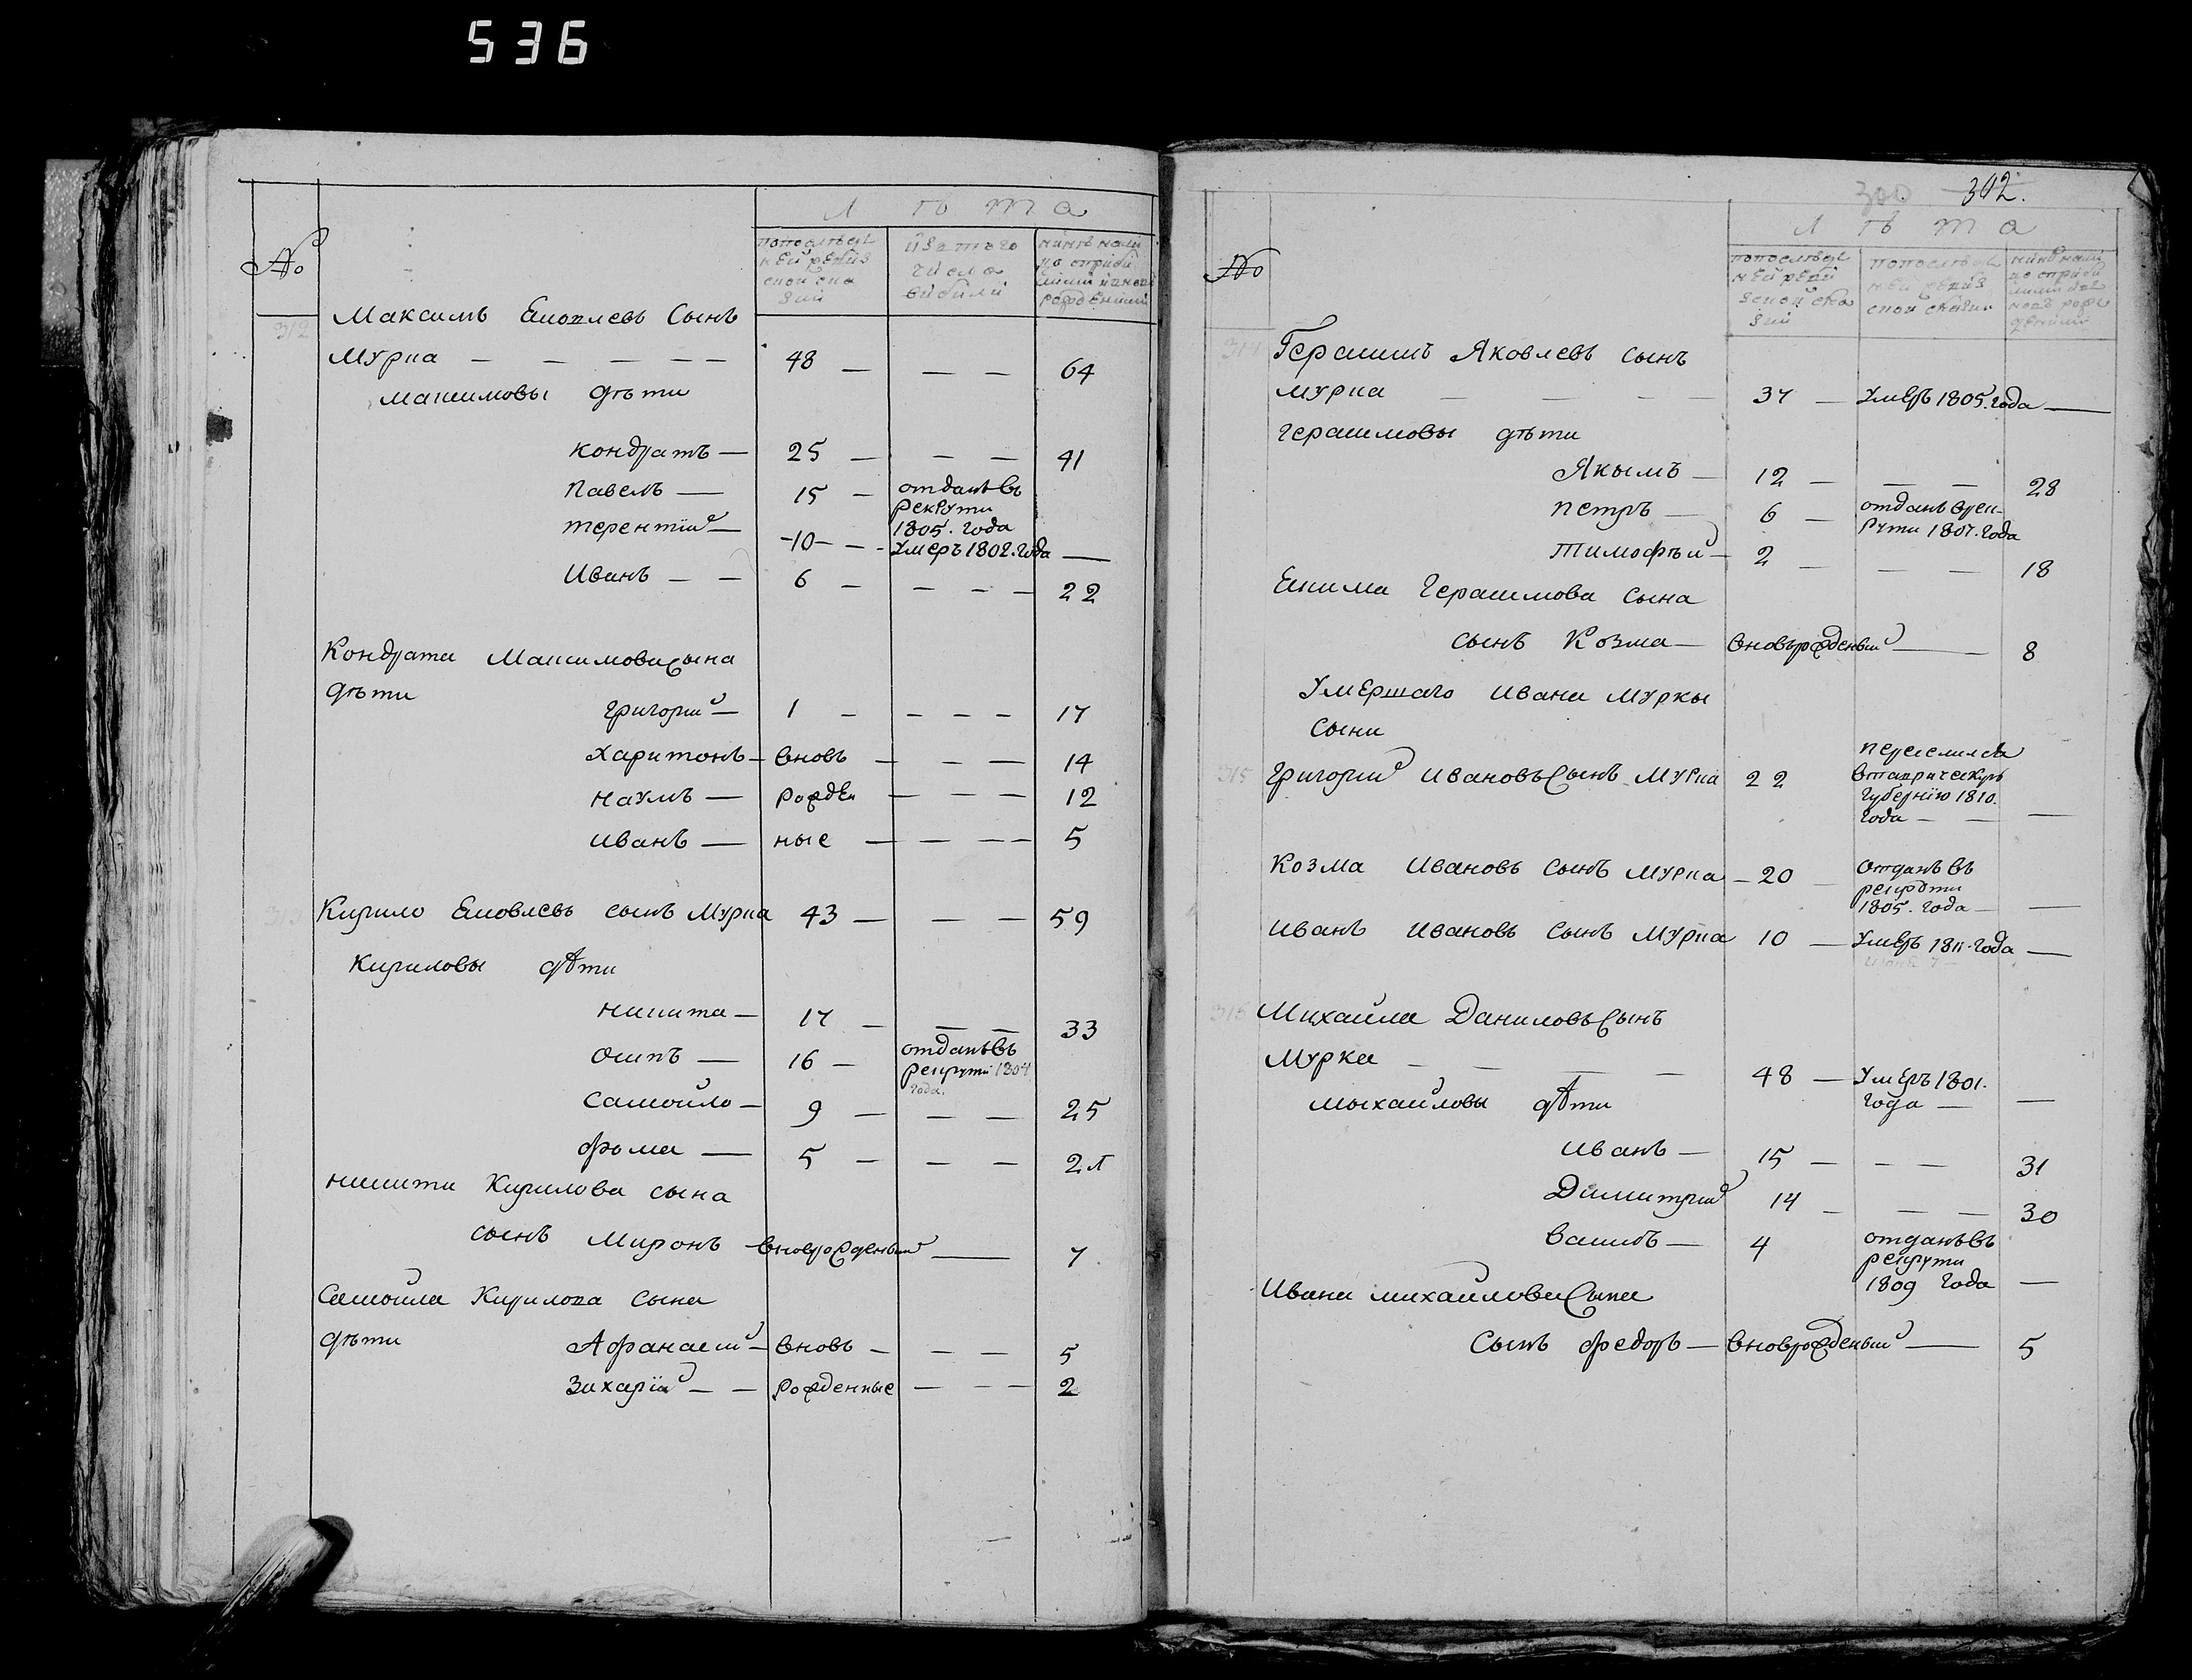 536
Л ѣ т а
№
попослѣд
ней ревиз
ской ска
зки
изтого
числа
выбыли
Максимъ Яковлевъ Сынъ
312
Мурка — — — — — 48 — — — 64
Максимовы дѣти
Кондратъ — 25 — — — 41
Павелъ — 15 — отданъ въ
рекрути
1805. года
терентий — -10- - - Умеръ 1802. года —
Иванъ — — 6 — — — — 22
Кондрата Максимова сына
дѣти
григорий — 1 — — — — 17
Харитонъ — вновь — — — 14
Наумъ — рожден — — — 12
иванъ — ные — — — — 5
313 Кирило Яковлевъ сынъ Мурка 43 — — — 59
Кириловы дѣти
никита — 17 — — — 33
осипъ — 16 — отданъ въ
рекрути 1804
года.
самойло — 9 — — — 25
фома — 5 — — — 21
никиты Кирилова сына
сынъ Миронъ — вноврожденый — 7
Самойла Кирилова сына
дѣти Афанасий — вновь — — — 5
Захарій — — рожденные — — — 2
300 302.
Л ѣ т а
№
попослѣд
ней реви
зской ска
зки
попослѣд
ней ревиз
ской сказки
314 Герасимъ Яковлевъ сынъ
мурка — — — — 37 — Умеръ 1805. года —
герасимовы дѣти
Якымъ — 12 — — — 28
петръ — 6 — отданъ врек
рути 1807. года
Тимофѣй — 2 — — — 18
Екима Герасимова сына
сынъ Козма — вновьрожденый — 8
Умершаго ивана Муркы
сыни
переселился
315 григорий ивановъ Сынъ Мурка 22 втаврическую
губернію 1810.
года — — —
Козма Ивановъ сынъ мурка — 20 — отданъ въ
рекрути
1805. года — —
иванъ ивановъ сынъ Мурка 10 — Умеръ 1811. года —
316 Михайла Даниловъ Сынъ
Мурка — — — — 48 — Умеръ 1801.
года — —
мыхайловы дѣти
иванъ — 15 — — — 31
Димитрий 14 — — — 30
василь — 4 отданъ въ
рекрути
1809 года —
Ивана михайлова Сына
Сынъ федоръ — вноврожденый — 5